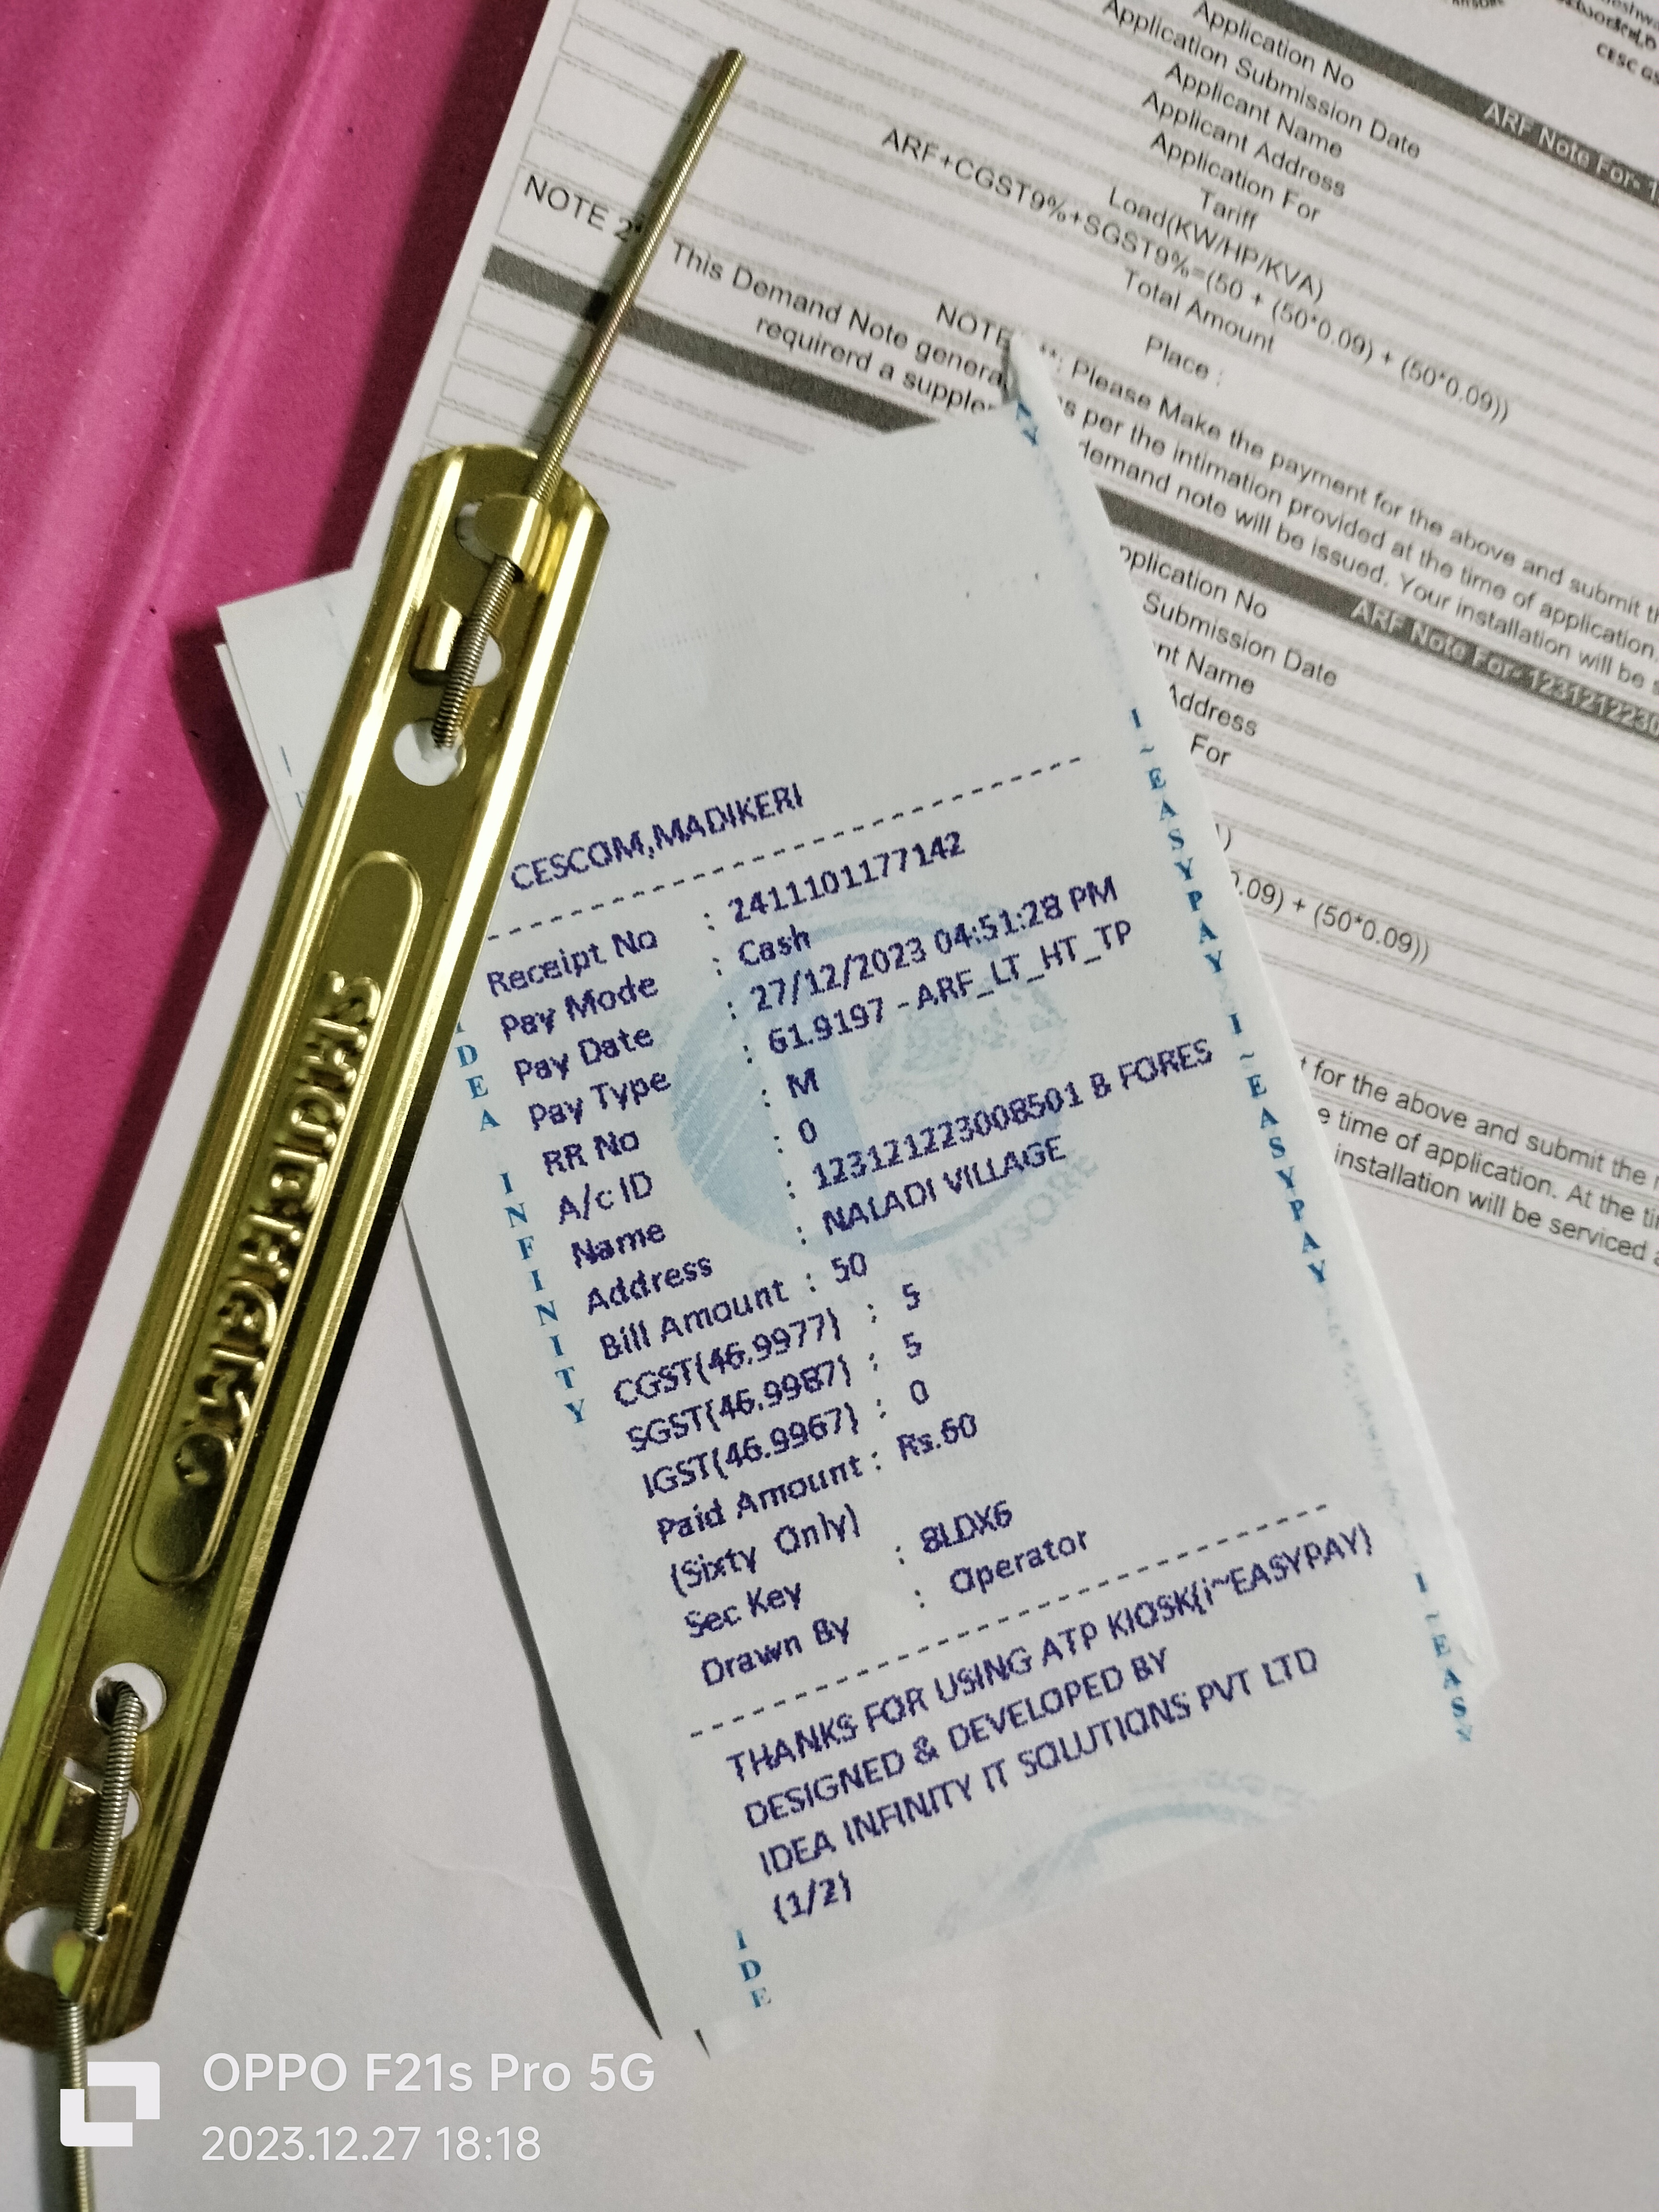 CESC GS
ARF Note For- 1
Application No
Application Submission Date
Applicant Name
Applicant Address
Application For
Tariff
Load(KW/HP/KVA)
ARF+CGST9%+SGST9%=(50 + (50*0.09) + (50*0.09))
Total Amount
Place :
NOTE 2*
NOTE **: Please Make the payment for the above and submit th
This Demand Note genera as per the intimation provided at the time of application.
requirerd a supple demand note will be issued. Your installation will be s
ARF Note For- 1231212230
pplication No
Submission Date
nt Name
Address
For
0.09) + (50*0.09))
t for the above and submit the r
e time of application. At the ti
installation will be serviced a
CESCOM,MADIKERI
Receipt No : 2411101177142
Pay Mode : Cash
Pay Date : 27/12/2023 04:51:28 PM
Pay Type : 61.9197 - ARF_LT_HT_TP
RR No : M
A/c ID : 0
Name : 123121223008501 B FORES
Address : NALADI VILLAGE
Bill Amount : 50
CGST(46.9977) : 5
SGST(46.9987) : 5
IGST(46.9967) : 0
Paid Amount : Rs.60
(Sixty Only)
Sec Key : 8LDX6
Drawn By : Operator
THANKS FOR USING ATP KIOSK(i~EASYPAY)
DESIGNED & DEVELOPED BY
IDEA INFINITY IT SOLUTIONS PVT LTD
(1/2)
IDEA INFINITY
I~EASYPAY I~EASYPAY
I~EASY
IDE
MYSORE
OPPO F21s Pro 5G
2023.12.27 18:18